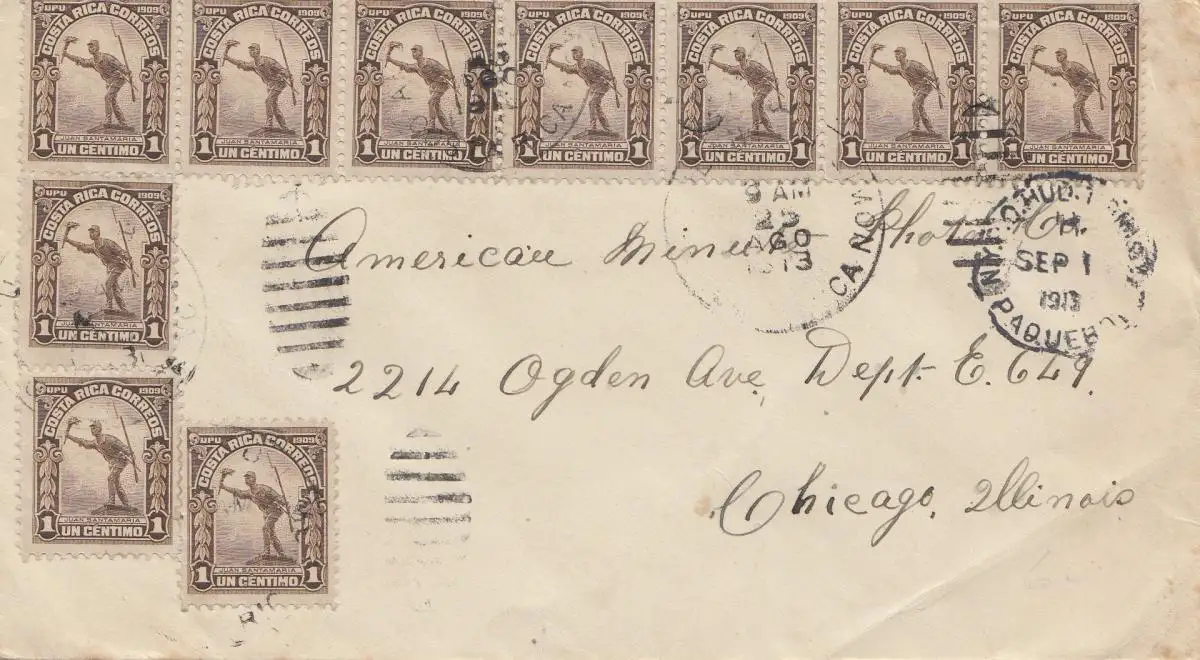 UPU 1909
COSTA RICA CORREOS
JUAN SANTAMARIA
1 UN CÉNTIMO 1
UPU 1909
COSTA RICA CORREOS
JUAN SANTAMARIA
1 UN CÉNTIMO 1
UPU 1909
COSTA RICA CORREOS
JUAN SANTAMARIA
1 UN CÉNTIMO 1
UPU 1909
COSTA RICA CORREOS
JUAN SANTAMARIA
1 UN CÉNTIMO 1
UPU 1909
COSTA RICA CORREOS
JUAN SANTAMARIA
1 UN CÉNTIMO 1
UPU 1909
COSTA RICA CORREOS
JUAN SANTAMARIA
1 UN CÉNTIMO 1
UPU 1909
COSTA RICA CORREOS
JUAN SANTAMARIA
1 UN CÉNTIMO 1
UPU 1909
COSTA RICA CORREOS
JUAN SANTAMARIA
1 UN CÉNTIMO 1
9 AM
AGO
1913
SEP 1
1913
PAQUEBOT
American Minute Photo Co.
2214 Ogden Ave, Dept. E. 649.
Chicago, Illinois
UPU 1909
COSTA RICA CORREOS
JUAN SANTAMARIA
1 UN CÉNTIMO 1
UPU 1909
COSTA RICA CORREOS
JUAN SANTAMARIA
1 UN CÉNTIMO 1